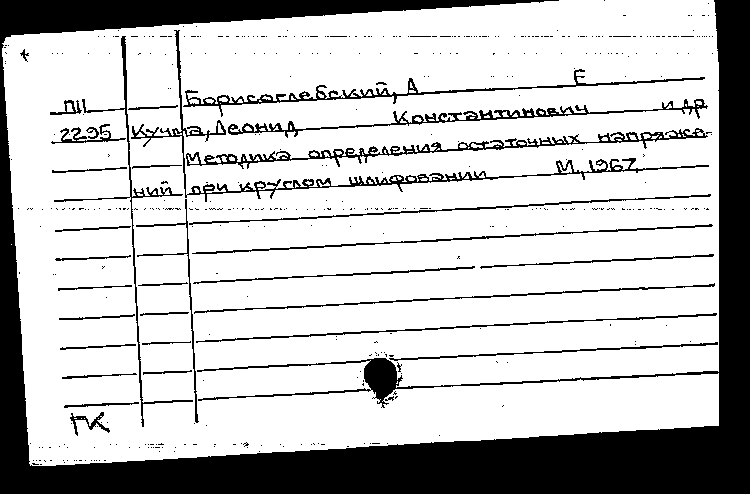 Борисоглебский, А Е
ПП
2295 Кучма, Леонид Константинович и др
Методика определения остаточных напряже-
ний при круглом шлифовании М., 1967.
ГК